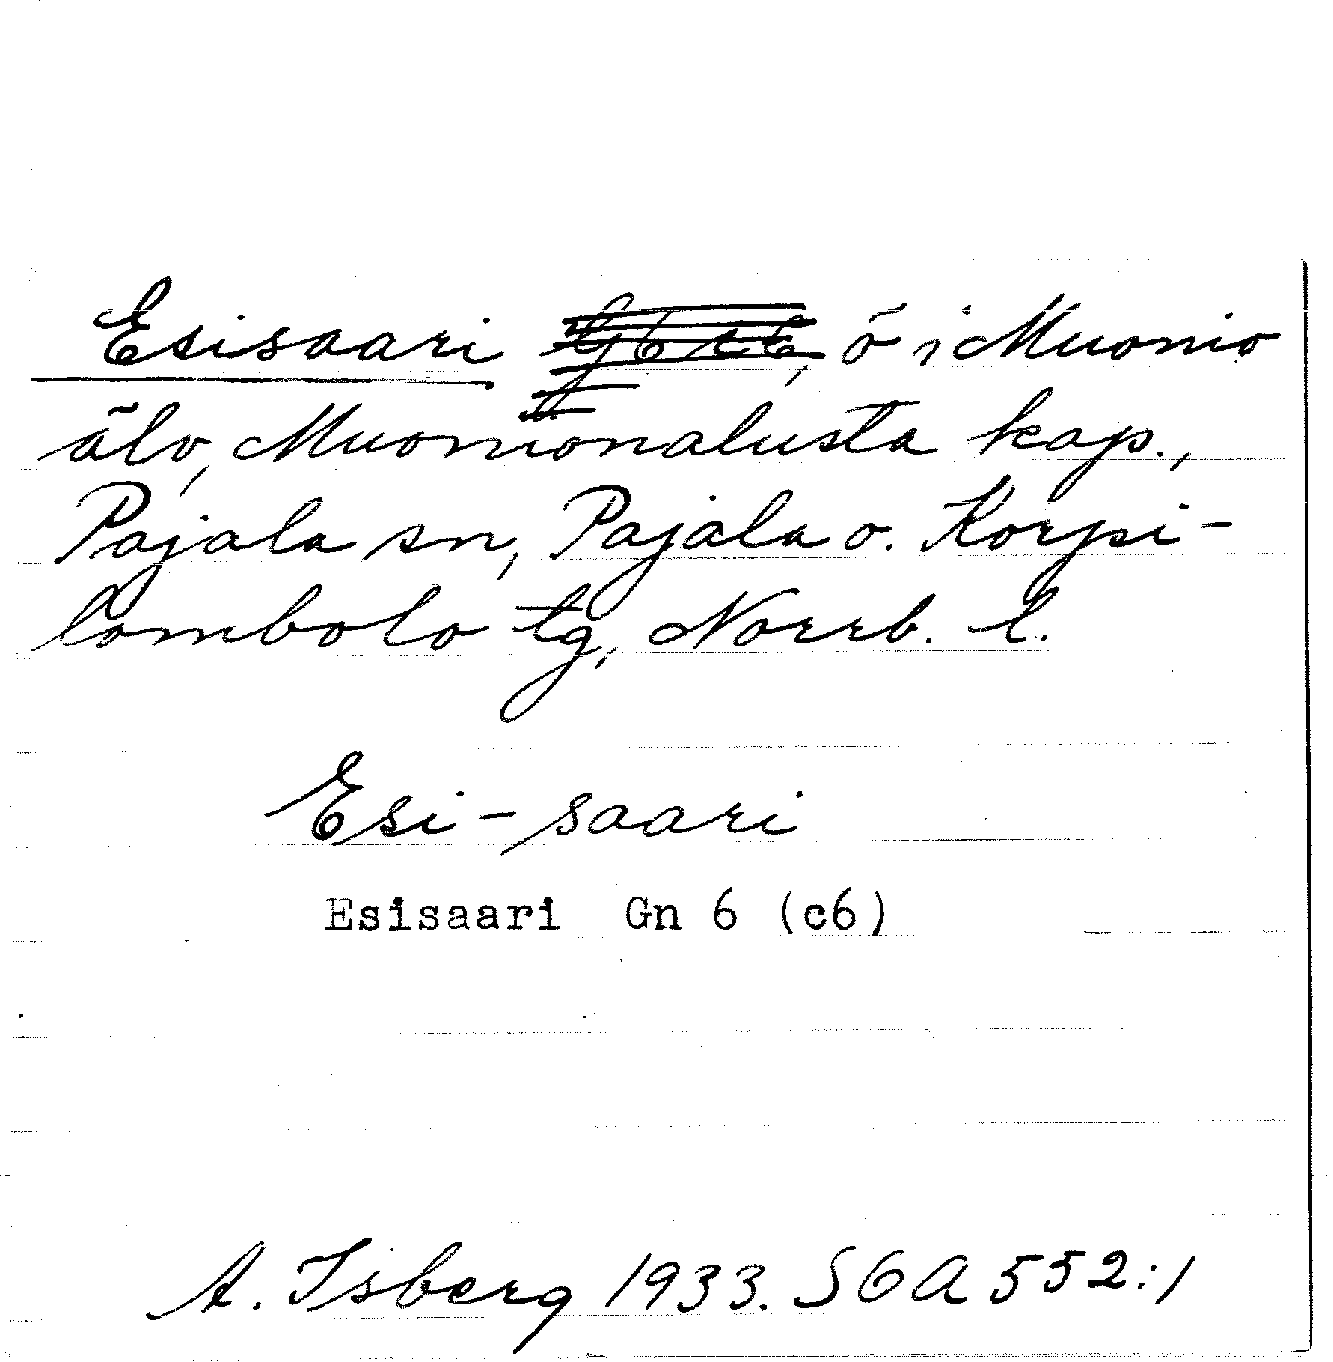 Esisaari, ö i Muonio
älv, Muonionalusta kap.,
Pajala sn, Pajala o. Korpi-
lombolo tg, Norrb. l.
Esi-saari
Esisaari Gn 6 (c6)
A. Isberg 1933. SOA 552:1